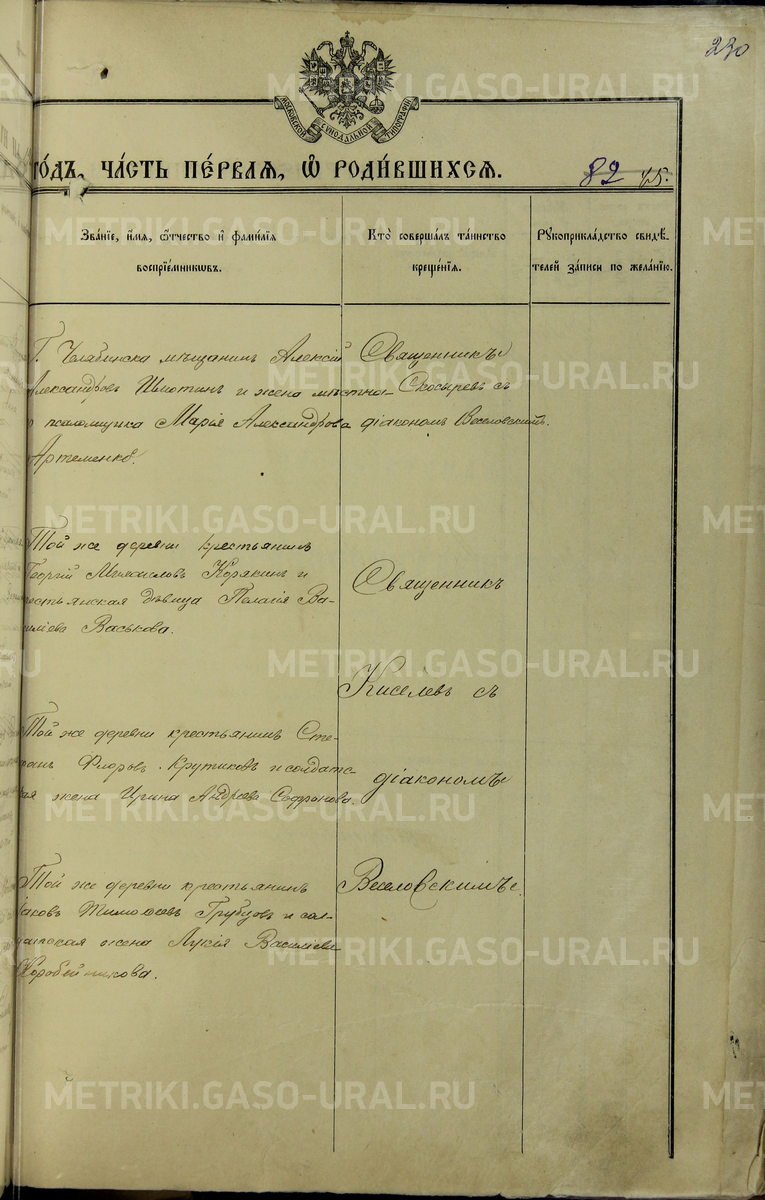 230
МОСКОВСКОЙ СѴНОДАЛЬНОЙ ТИПОГРАФІИ
го́дъ, ча́сть пе́рвая, ѡ҆ роди́вшихсѧ.
82 45.
Зва́нїе, и҆́мѧ, ѻ҆́тчество и҆ фами́лїѧ
воспрїе́мникѡвъ.
Кто̀ соверша́лъ та́инство
креще́нїѧ.
Рꙋкоприкла́дство свидѣ́-
телей за́писи по жела́нїю.
Г. Челябинска мѣщанинъ Алексій
Александровъ и жена мѣстна-
псаломщика Марія Александрова
Артеменко.
Священникъ
Скосыревъ съ
діакономъ Веселовскимъ.
Той же деревни крестьянинъ
Георгій Корякинъ и
крестьянская дѣвица Пелагія Ва-
силіева Васькова.
Священникъ
Киселевъ съ
діакономъ
Веселовскимъ.
Той же деревни крестьянинъ Сте-
фанъ Флоровъ Крутиковъ и солдатс-
кая жена Ирина Андреева Софронова.
Той же деревни крестьянинъ
Іаковъ Тимофеевъ Грубцовъ и сол-
датская жена Лукія Василіева
Коробейникова.
METRIKI.GASO-URAL.RU